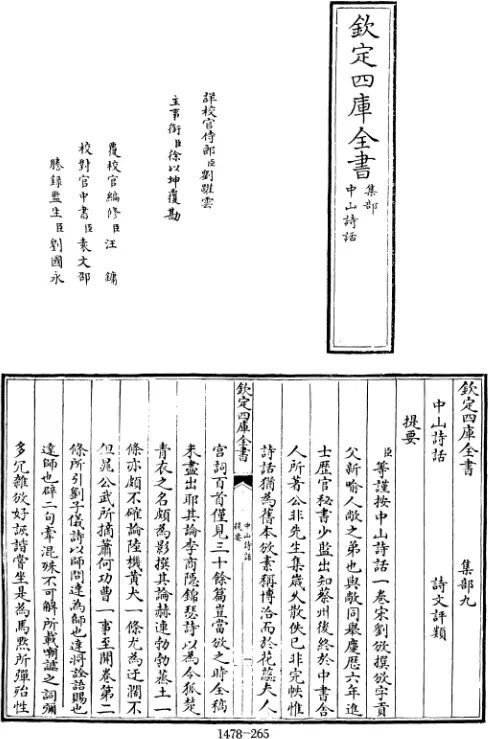 欽定四庫全書
集部
中山詩話
詳校官侍郎臣劉躍雲
主事銜臣徐以坤覆勘
覆校官編修臣汪鏞
校對官中書臣袁文邵
謄錄監生臣劉國永
欽定四庫全書 集部九
中山詩話 詩文評類
提要
臣等謹按中山詩話一卷宋劉攽撰攽字貢
父新喻人敞之弟也與敞同舉慶歷六年進
士歷官秘書少監出知蔡州後終於中書舍
人所著公非先生集歲久散佚已非完帙惟
詩話猶為舊本攽素稱博洽而於花蕊夫人
欽定四庫全書
中山詩話
提要
一
宮詞百首僅見三十餘篇豈當攽之時全稿
未盡出耶其論李商隱錦瑟詩以為令狐楚
青衣之名頗為影撰其論赫連勃勃蒸土一
條亦頗不確論陸機黃犬一條尤為迂濶不
但晁公武所摘蕭何功曹一事至開卷第二
條所引劉子儀詩以師問達為師也達將論語賜也
達師也辟二句牽混殊不可解所載嘲謔之詞彌
多冗雜攽好詼諧嘗坐是為馬默所彈殆性
1478-265